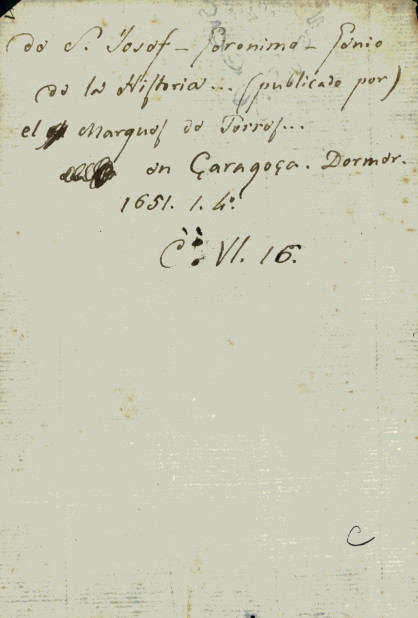 de S. Josef - Geronimo - Genio
de la Historia... (publicado por)
el Marques de Torres...
en Çaragoça. Dormer.
1651. 1. 4º
Cª VI. 16.
C